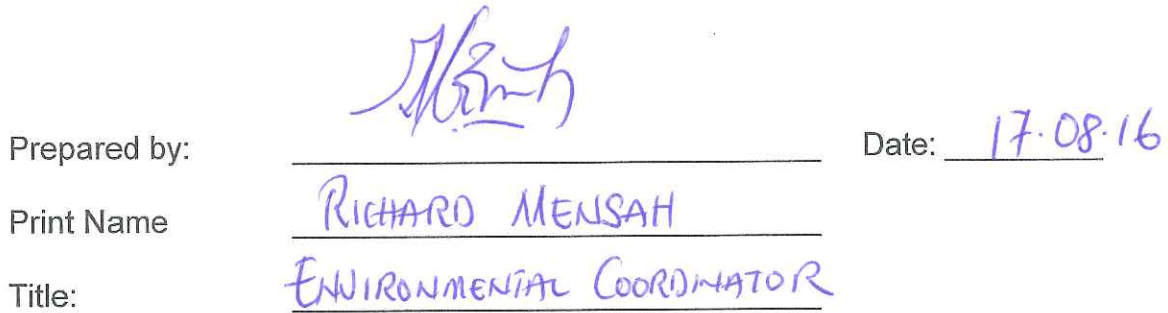 Prepared by: Date: 17.08.16
Print Name RICHARD MENSAH
Title: ENVIRONMENTAL COORDINATOR